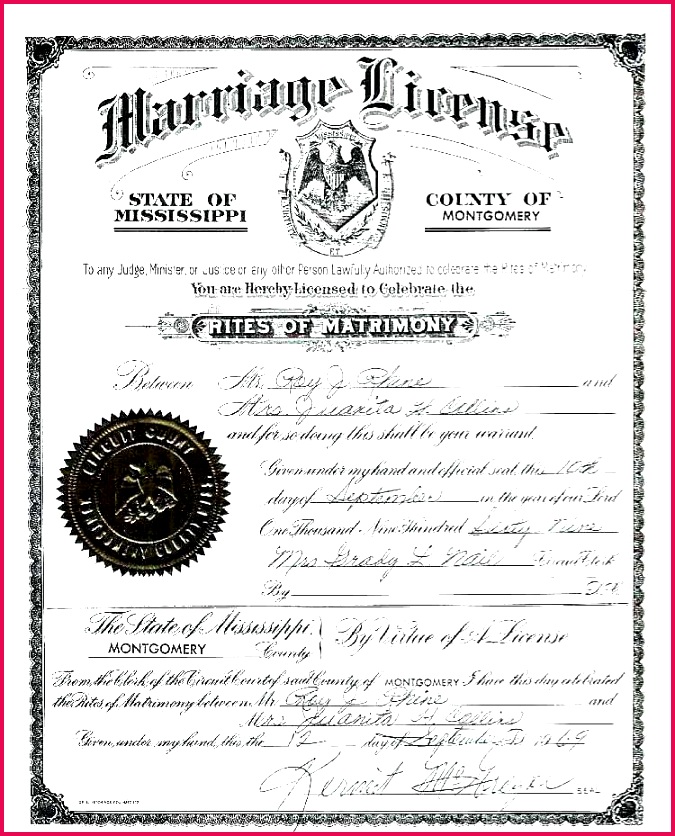 Marriage License
STATE OF MISSISSIPPI
COUNTY OF MONTGOMERY
To any Judge, Minister, or Justice or any other Person Lawfully Authorized to celebrate the Rites of Matrimony
You are Hereby Licensed to Celebrate the
RITES OF MATRIMONY
Between Mr. Roy J. Rhine and
Mrs. Juanita H. Collins
and for so doing this shall be your warrant.
Given under my hand and official seal, this 10th
day of September in the year of our Lord
One Thousand Nine Hundred Sixty Nine
Mrs Grady L. Nail Circuit Clerk
By D.C.
CIRCUIT COURT
SEAL
MONTGOMERY COUNTY
The State of Mississippi,
MONTGOMERY County
By Virtue of A License
From the Clerk of the Circuit Court of said County of MONTGOMERY I have this day celebrated
the Rites of Matrimony between Mr Roy J. Rhine and
Mrs Juanita H. Collins
Given under my hand, this the 12 day of September 1969
SEAL